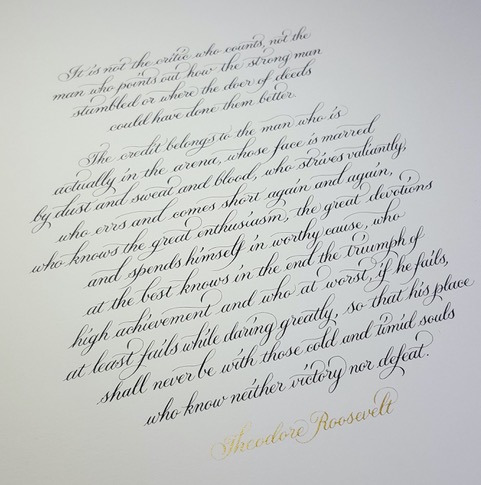 It is not the critic who counts, not the
man who points out how the strong man
stumbled or where the doer of deeds
could have done them better.
The credit belongs to the man who is
actually in the arena, whose face is marred
by dust and sweat and blood, who strives valiantly;
who errs and comes short again and again,
who knows the great enthusiasm, the great devotions
and spends himself in worthy cause, who
at the best knows in the end the triumph of
high achievement and who at worst, if he fails,
at least fails while daring greatly, so that his place
shall never be with those cold and timid souls
who know neither victory nor defeat.
Theodore Roosevelt